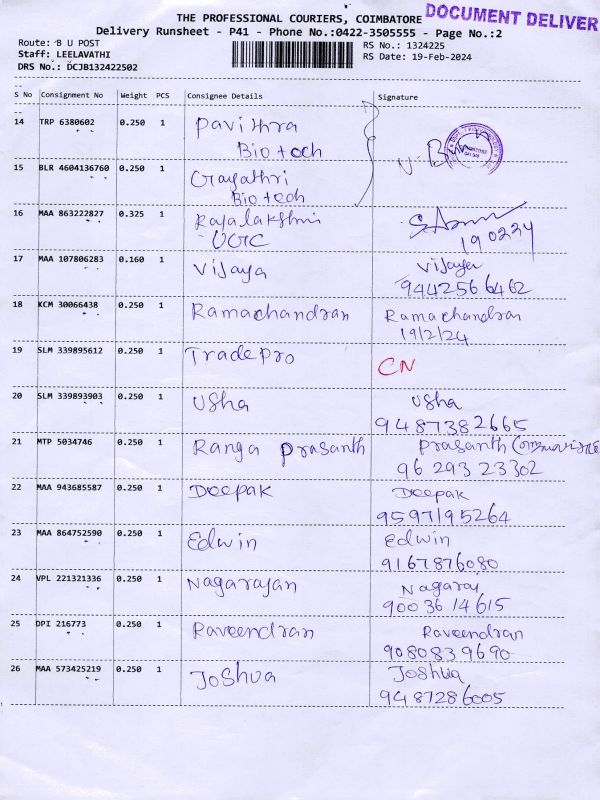 THE PROFESSIONAL COURIERS, COIMBATORE
DOCUMENT DELIVER
Delivery Runsheet - P41 - Phone No.:0422-3505555 - Page No.:2
Route: B U POST
RS No.: 1324225
Staff: LEELAVATHI
RS Date: 19-Feb-2024
DRS No.: DCJB132422502
S No Consignment No Weight PCS Consignee Details Signature
14 TRP 6380602 0.250 1 Pavithra
Biotech
15 BLR 4604136760 0.250 1 Gayathri
Biotech
16 MAA 863222827 0.325 1 Rajalakshmi
UGC
190224
17 MAA 107806283 0.160 1 Vijaya Vijaya
9442566462
18 KCM 30066438 0.250 1 Ramachandran Ramachandran
19/2/24
19 SLM 339895612 0.250 1 TradePro CN
20 SLM 339893903 0.250 1 Usha Usha
9487382665
21 MTP 5034746 0.250 1 Ranga Prasanth Prasanth
96 293 23302
22 MAA 943685587 0.250 1 Deepak Deepak
9597195264
23 MAA 864752590 0.250 1 Edwin Edwin
9167876080
24 VPL 221321336 0.250 1 Nagarajan Nagaraj
90036 14615
25 DPI 216773 0.250 1 Raveendran Raveendran
9080839690
26 MAA 573425219 0.250 1 Joshua Joshua
9487286005